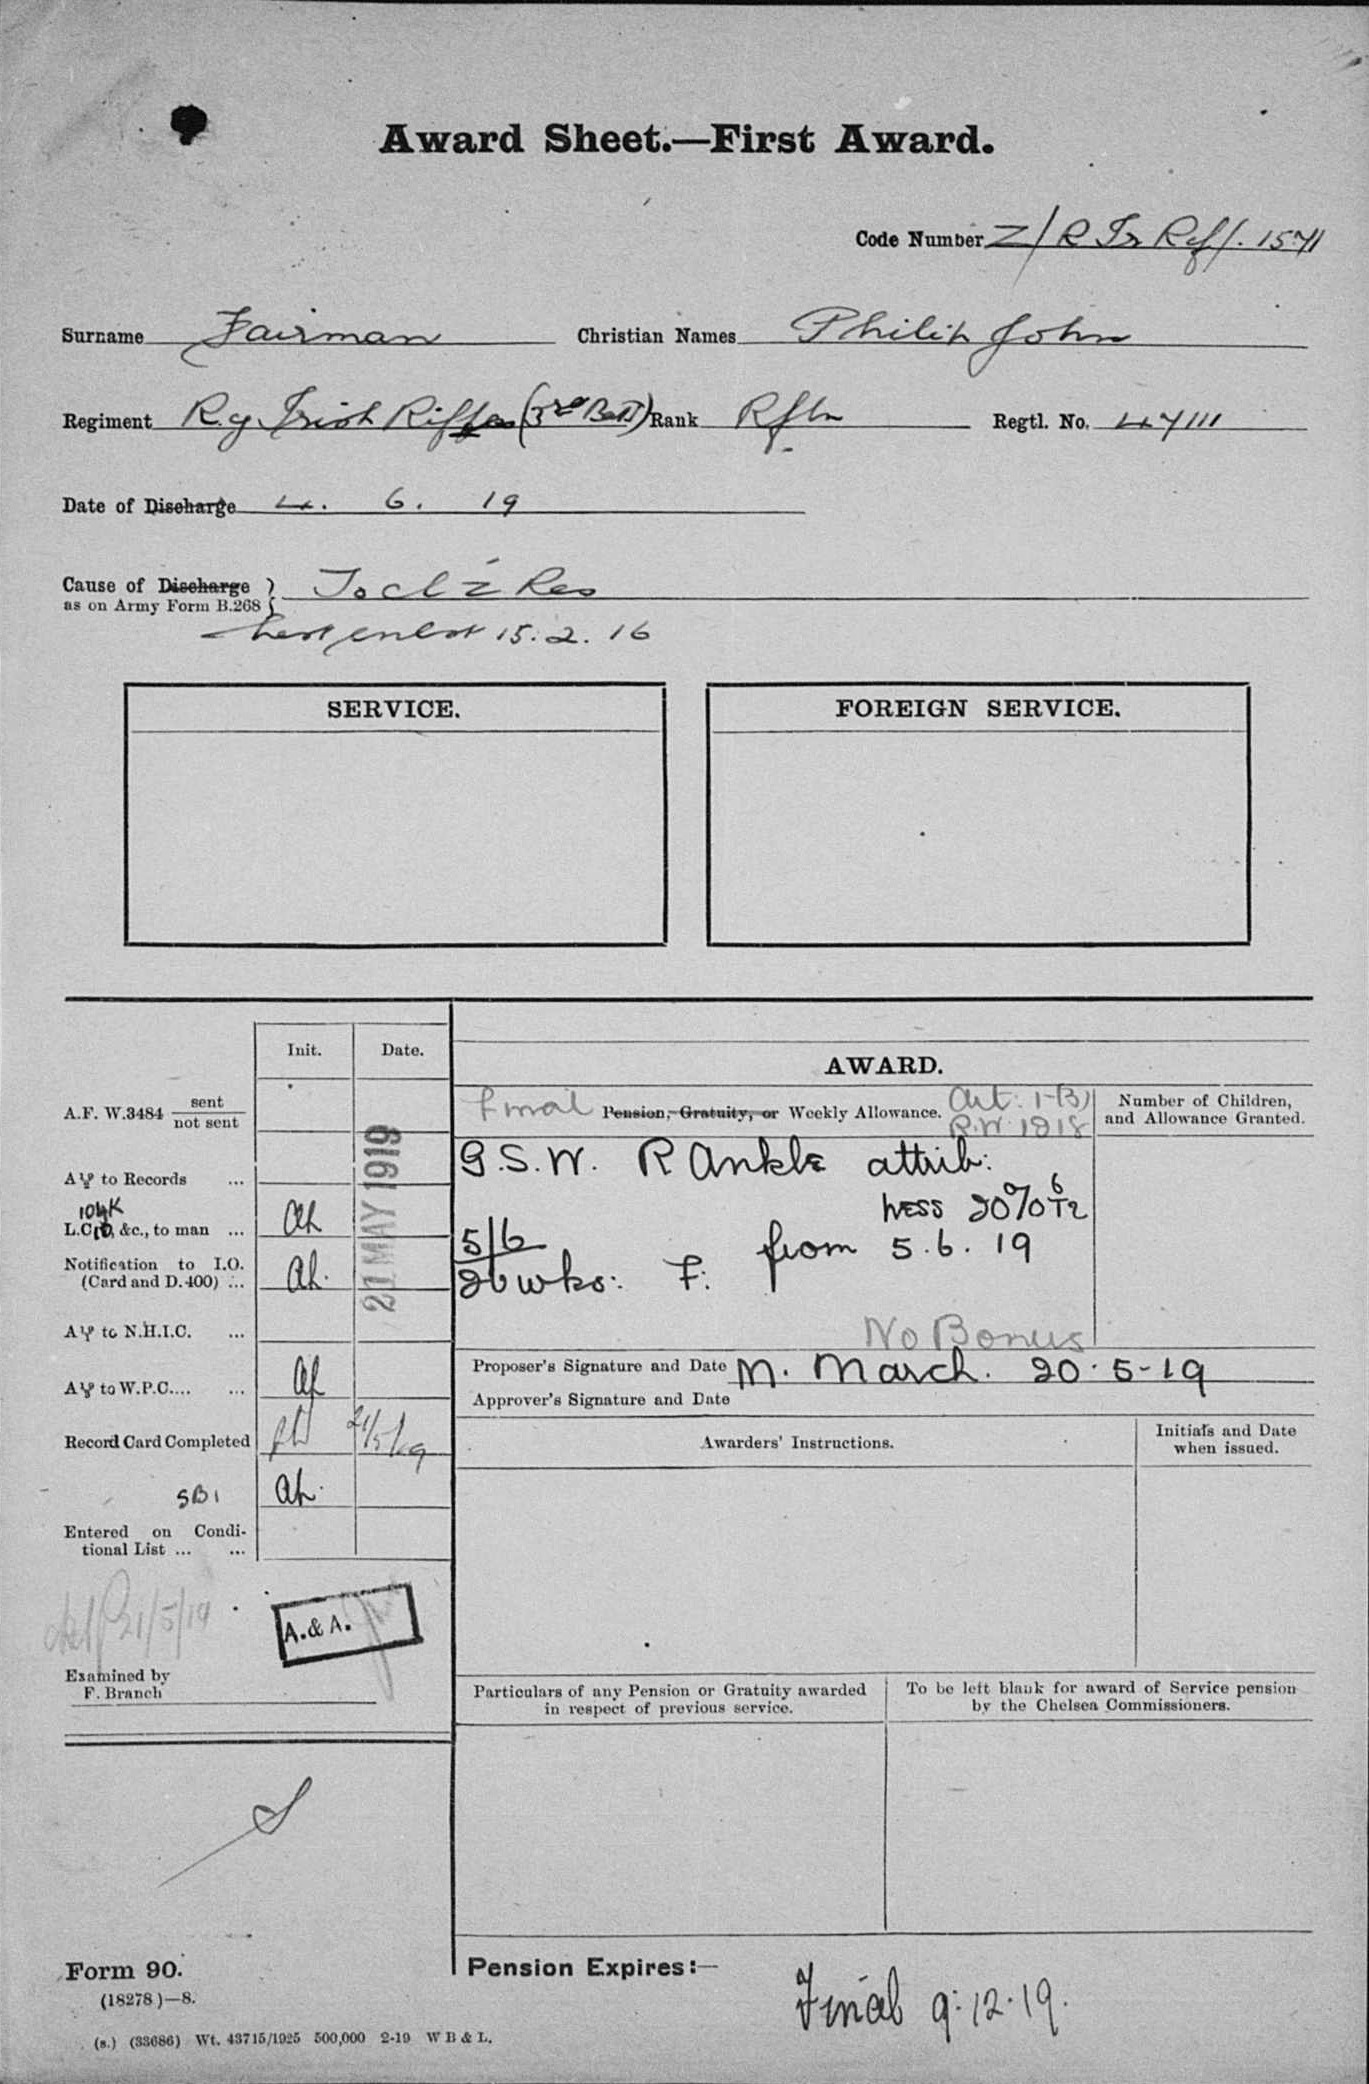 Award Sheet.—First Award.
Code Number Z/R Ir Rif/. 1571
Surname Fairman Christian Names Philip John
Regiment R.y Irish Rifles (3rd Batt) Rank Rfln Regtl. No. 47111
Date of Discharge 4. 6. 19
Cause of Discharge } To cl Z Res
as on Army Form B.268
enlist 15.2.16
SERVICE.
FOREIGN SERVICE.
Init. Date.
AWARD.
A.F. W.3484 sent
not sent
Final Pension, Gratuity, or Weekly Allowance. Art: 1-B)
R.W. 1918
Number of Children,
and Allowance Granted.
21 MAY 1919
G.S.W. R Ankle attrib:
Less 20%
5/6 from 5.6.19
26 wks: F:
No Bonus
to Records ...
104K
L.C. &c., to man ... AL
Notification to I.O.
(Card and D.400) ... AL.
to N.H.I.C. ...
to W.P.C.... ...
Record Card Completed 21/5/19
SB1 AL.
Entered on Condi-
tional List ... ...
Proposer's Signature and Date M. March. 20-5-19
Approver's Signature and Date
Awarders' Instructions.
Initials and Date
when issued.
21/5/19
A. & A.
Examined by
F. Branch
Particulars of any Pension or Gratuity awarded
in respect of previous service.
To be left blank for award of Service pension
by the Chelsea Commissioners.
Form 90.
(18278)—8.
(s.) (33686) Wt. 43715/1925 500,000 2-19 W B & L.
Pension Expires:—
Final 9.12.19.